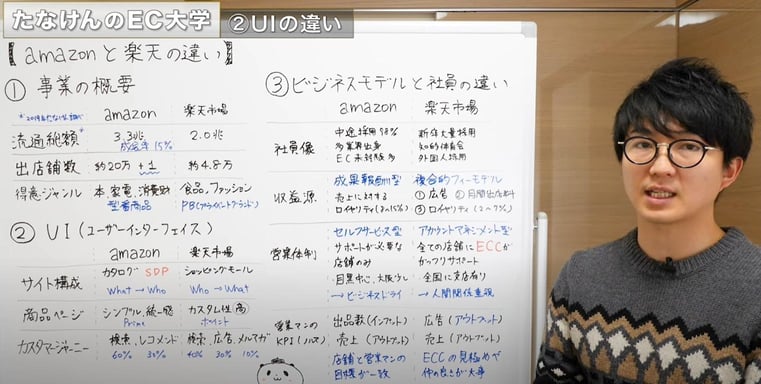 たなけんのEC大学
②UIの違い
【amazonと楽天の違い】
① 事業の概要
amazon 楽天市場
流通総額* 3.3兆 2.0兆
成長率15%
出店舗数 約20万+1 約4.8万
得意ジャンル 本、家電、消費財 食品、ファッション
型番商品 PB(プライベートブランド)
② UI(ユーザーインターフェイス)
amazon 楽天市場
サイト構成 カタログ SDP ショッピングモール
What→Who Who→What
商品ページ シンプル、統一感 カスタム性高
Prime ポイント
カスタマージャーニー 検索、レコメンド 検索、広告、メルマガ
60% 30% 40% 30% 10%
③ビジネスモデルと社員の違い
amazon 楽天市場
社員像 中途採用98% 新卒大量採用
多業界出身 知的体育会
EC未経験多 外国人採用
収益源 成果報酬型 複合的フィーモデル
売上に対する ①広告 ②月間出店料
ロイヤリティ(8〜15%) ③ロイヤリティ(2〜7%)
営業体制 セルフサービス型 アカウントマネジメント型
サポートが必要な 全ての店舗にECCが
店舗のみ がっつりサポート
目黒中心、大阪少し 全国に支店有り
→ビジネスドライ →人間関係重視
営業マンの 出品数(インプット) 広告(アウトプット)
KPI(ノルマ) 売上(アウトプット) 売上(アウトプット)
店舗と営業マンの ECCの見極めや
目標が一致 仲の良さが大事